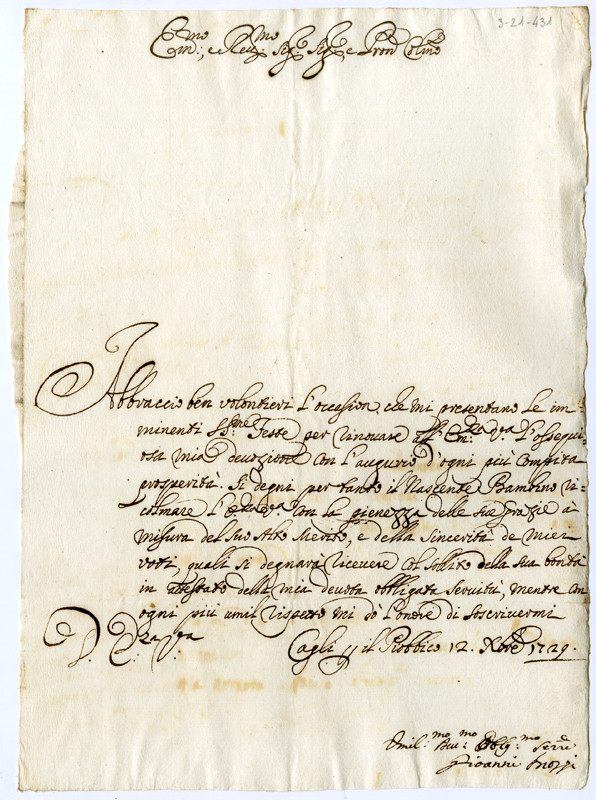 3-21-431
Em.mo, e Rev.mo Sig.r Sig.r e Pron Colmo
Abbraccio ben volontieri l'occasion, che mi presentano le im=
minenti SS.me Feste per rinovare all' Em.za V.ra l'ossequi
osa mia devozione con l'augurio d'ogni più compita
prosperità. Si degni per tanto il Nascente Bambino ri=
colmare l' Em.za V.ra con la pienezza delle sue grazie à
misura del suo Alto Merito, e della sincerità de miei
voti, quali si degnarà ricevere col sollito della sua bontà
in attestato della mia devota obbligata servitù, mentre con
ogni più umil rispetto mi dò l'onore di soscrivermi
D. E.za V.ra
Cagli il 12. Xbre 1729.
Umil.mo Dev.mo Oblig.mo Serre